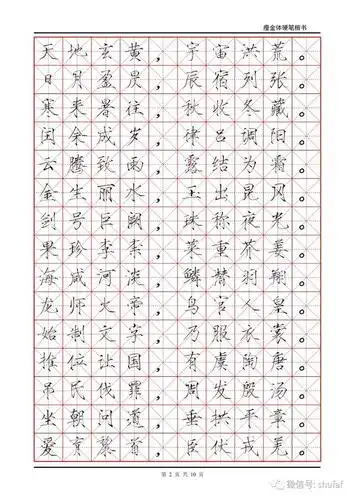 瘦金体硬笔楷书
天地玄黄，宇宙洪荒。
日月盈昃，辰宿列张。
寒来暑往，秋收冬藏。
闰余成岁，律吕调阳。
云腾致雨，露结为霜。
金生丽水，玉出昆冈。
剑号巨阙，珠称夜光。
果珍李柰，菜重芥姜。
海咸河淡，鳞潜羽翔。
龙师火帝，鸟官人皇。
始制文字，乃服衣裳。
推位让国，有虞陶唐。
吊民伐罪，周发殷汤。
坐朝问道，垂拱平章。
爱育黎首，臣伏戎羌。
第 2 页 共 10 页
微信号: shufaf